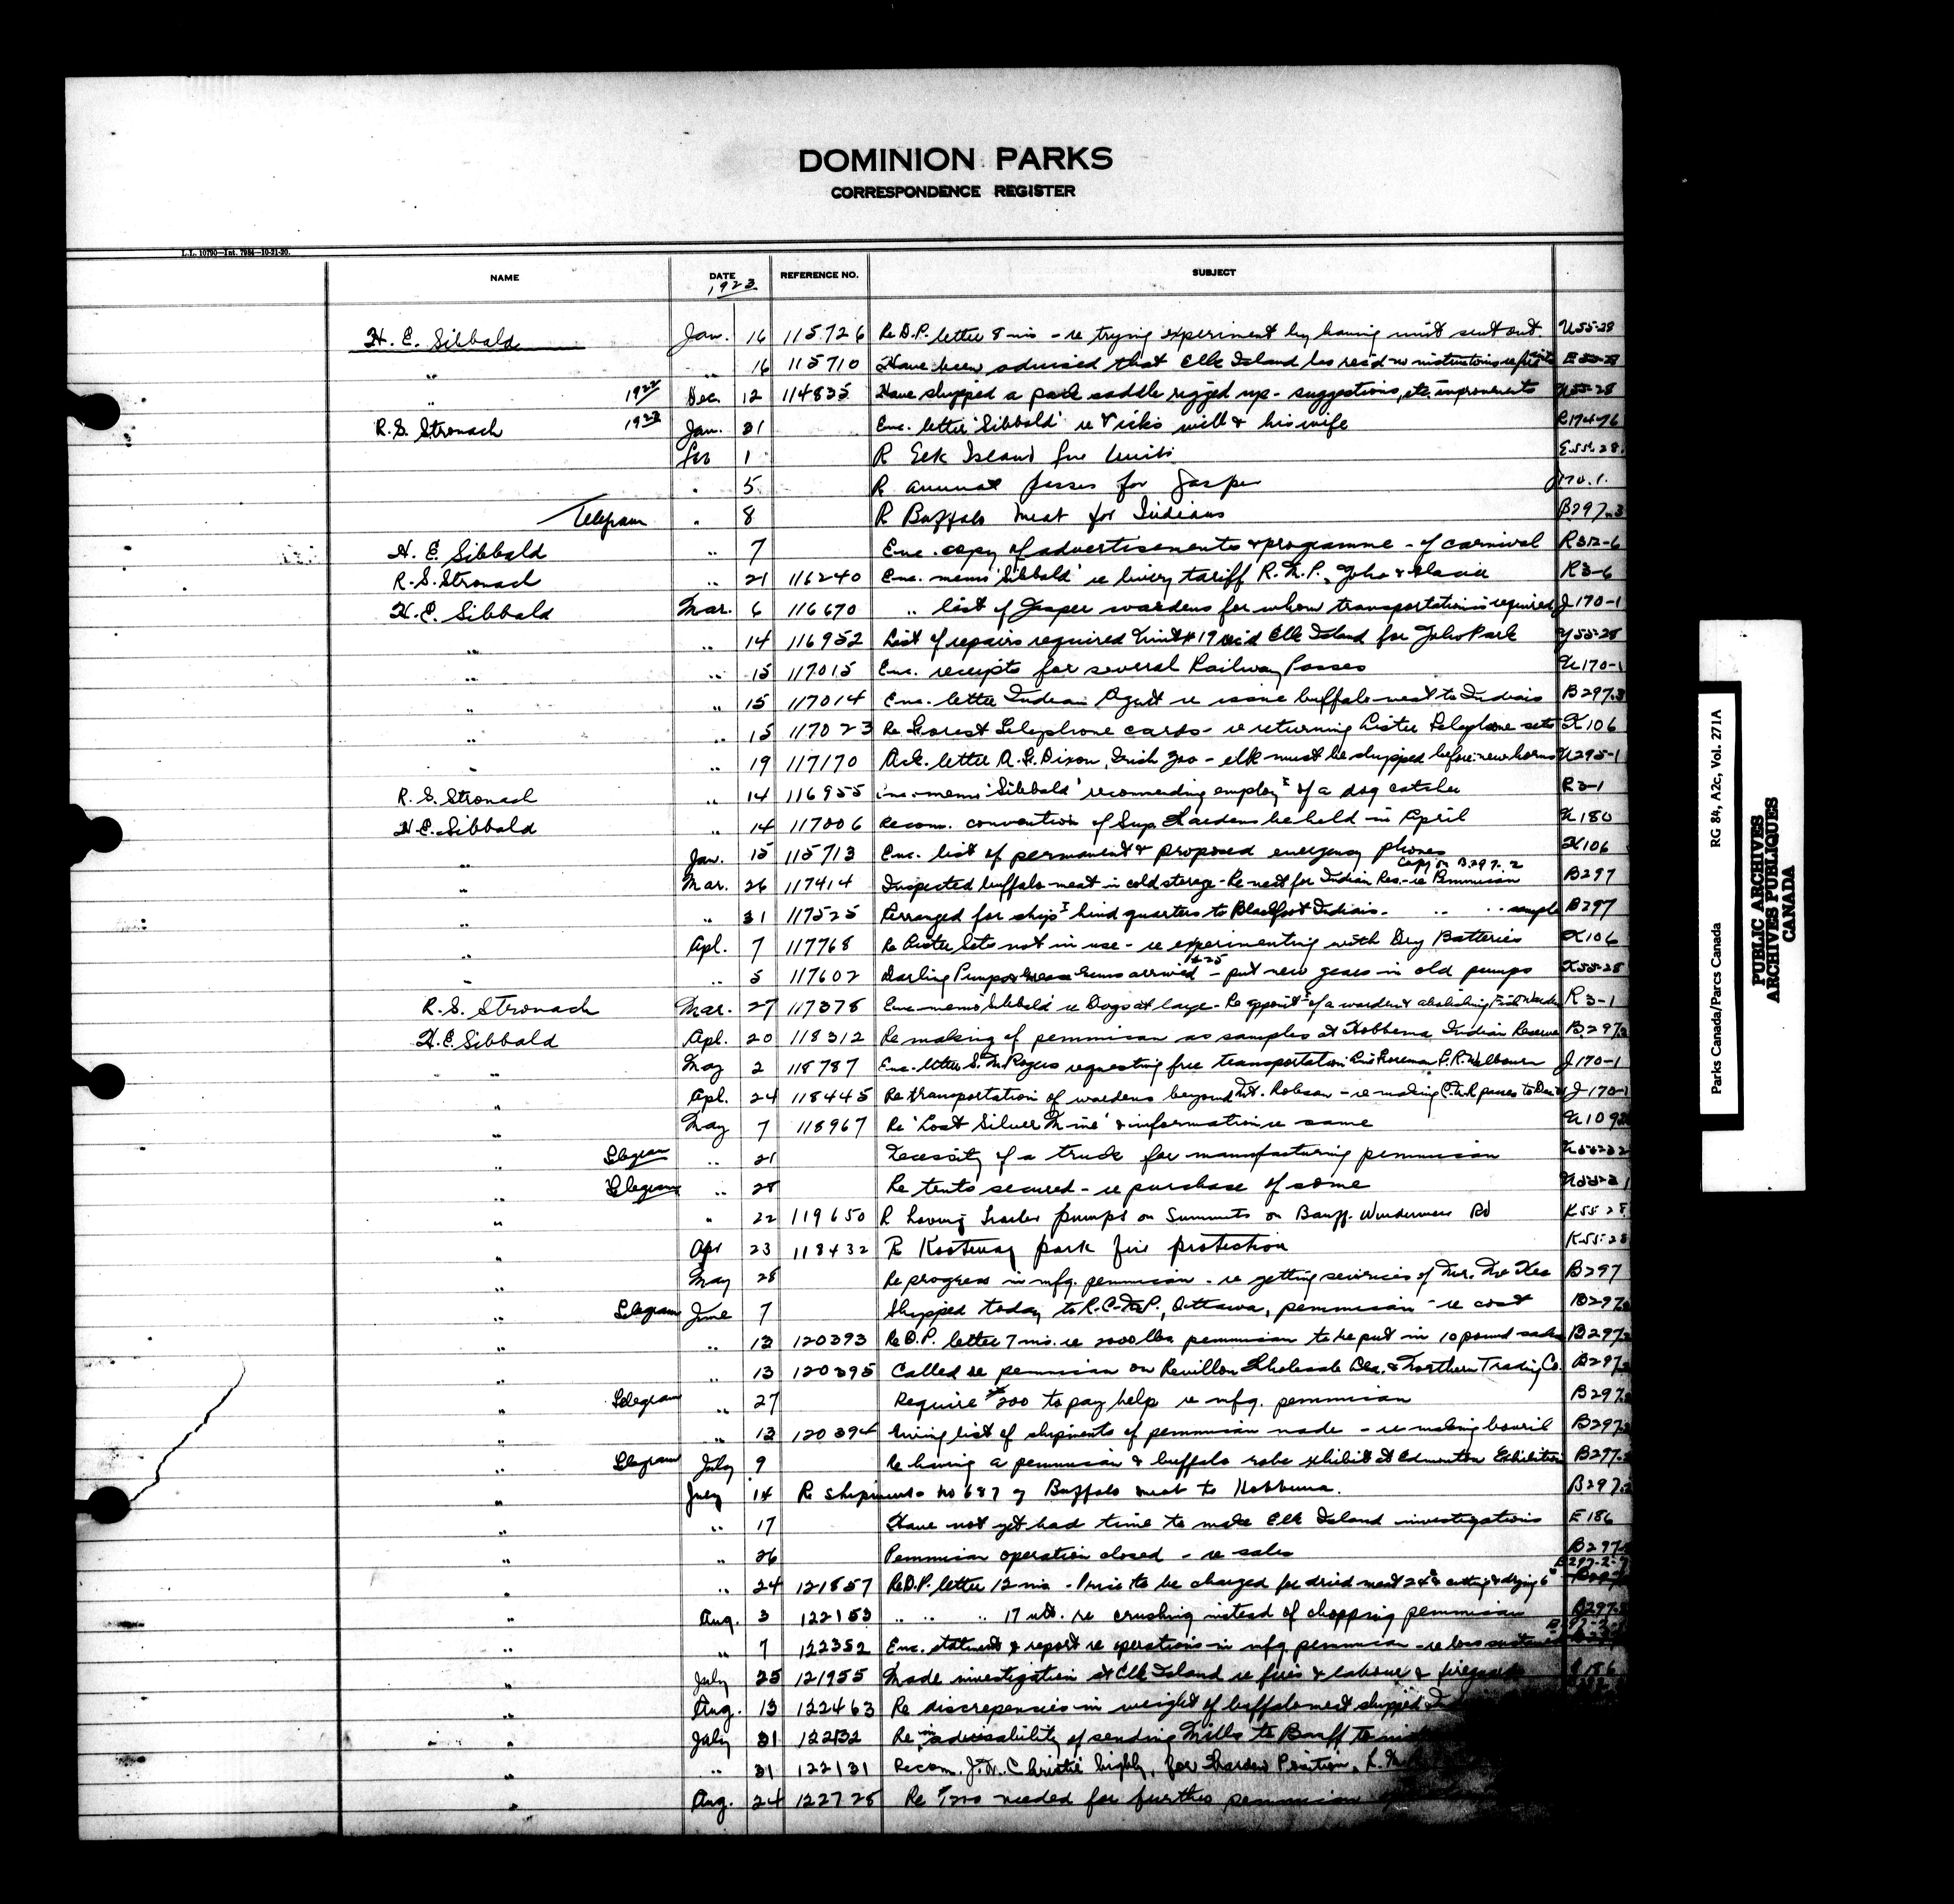 DOMINION PARKS
CORRESPONDENCE REGISTER
L.L. 10790—Int. 7984—10-21-20.
NAME DATE REFERENCE NO. SUBJECT
1923
H. E. Sibbald Jan. 16 115726 Re D.P. letter 8 ins - re trying experiment by having unit sent out U55-28
" " 16 115710 Have been advised that Elk Island has rec'd no instructions re fire units E55-28
" 1922 Dec. 12 114835 Have shipped a pack saddle rigged up - suggestions, etc. improvements U55-28
R.S. Stronach 1923 Jan. 31 Enc. letter 'Sibbald' re will & his wife R174-76
Feb 1 R Elk Island fire Units E55-28.
" 5 R annual passes for Jasper J170.1.
Telegram " 8 R Buffalo meat for Indians B297.3
H. E. Sibbald " 7 Enc. copy of advertisements & programme - of carnival R312-6
R.S. Stronach " 21 116240 Enc. memo 'Sibbald' re livery tariff R.M.P., Yoho & Glacier R3-6
H.E. Sibbald Mar. 6 116670 " list of Jasper wardens for whom transportation is required J170-1
" " 14 116952 List of repairs required Unit #19 rec'd Elk Island for Yoho Park Y55-28
" " 15 117015 Enc. receipts for several Railway Passes U170-1
" " 15 117014 Enc. letter Indian Agent re issue buffalo meat to Indians B297.3
" " 15 117023 Re Forest Telephone cards - re returning Lister Telephone sets U106
" " 19 117170 Ack. letter A.F. Dixon, Zoo - elk must be shipped before new horns U295-1
R.S. Stronach " 14 116955 Enc. memo 'Sibbald' recommending employt of a dog catcher R3-1
H.E. Sibbald " 14 117006 Recom. convention of Sup. Wardens be held in April U180
" Jan. 15 115713 Enc. list of permanent & proposed emergency phones U106
Copy on B297.2
" Mar. 26 117414 Inspected buffalo meat in cold storage - Re meat for Indian Res. - re Pemmican B297
" " 31 117525 Arranged for shipt hind quarters to Blackfoot Indians. " " sample B297
" Apl. 7 117768 Re Lister Sets not in use - re experimenting with Dry Batteries U106
" " 5 117602 Darling Pumps & Grease Guns arrived - put new gears in old pumps U55-28
R.S. Stronach Mar. 27 117378 Enc. memo 'Sibbald' re Dogs at large - Re appoint of a warden & abolishing Fish Warden R3-1
H.E. Sibbald Apl. 20 118312 Re making of pemmican as samples at Hobbema Indian Reserve B297.2
" May 2 118787 Enc. letter S.M. Rogers requesting free transportation Foreman J170-1
" Apl. 24 118445 Re transportation of wardens beyond Mt. Robson - re making C.N.R passes to J-170-1
" May 7 118967 Re 'Lost Silver Mine' & information re same U109
" Telegram " 21 Necessity of a truck for manufacturing pemmican
" Telegram " 28 Re tents secured - re purchase of same
" " 22 119650 R having trailer pumps on Summits on Banff-Windermere Rd K55-28
" Apr 23 118432 R Kootenay park fire protection K55-28
" May 28 Re progress in mfg. pemmican - re getting services of Mr. McKee B297
" Telegram June 7 Shipped today to R.C.M.P., Ottawa, pemmican - re cost B297.2
" " 13 120393 Re D.P. letter 7 ins. re 2000 lbs. pemmican to be put in 10 pound sacks B297.2
" " 13 120395 Called re pemmican on Revillon Wholesale & Northern Trading Co. B297.2
" Telegram " 27 Require $200 to pay help re mfg. pemmican B297.2
" " 13 120394 Giving list of shipments of pemmican made - re making bovril B297.2
" Telegram July 9 Re having a pemmican & buffalo robe exhibit at Edmonton Exhibition B297.2
" July 14 Re shipment no 687 of Buffalo meat to Hobbema. B297.2
" " 17 Have not yet had time to make Elk Island investigations E186
" " 26 Pemmican operation closed - re sales B297
B297-2-9
" " 24 121857 Re D.P. letter 12 ins - Price to be charged for dried meat 24¢ & cutting & drying 6¢
" Aug. 3 122153 " " " 17 ult. re crushing instead of chopping pemmican B297.2
" " 7 122352 Enc. statement & report re operations in mfg pemmican - re loss sustained
" July 25 121955 Made investigation at Elk Island re fires & labour & fireguards E186
" Aug. 13 122463 Re discrepencies in weight of buffalo meat shipped
" July 31 122132 Re inadvisability of sending Mills to Banff to
" " 31 122131 Recom. J.W. Christie highly, for Warden Position,
" Aug. 24 122728 Re $200 needed for further pemmican
RG 84, A2c, Vol. 271A
Parks Canada/Parcs Canada
PUBLIC ARCHIVES
ARCHIVES PUBLIQUES
CANADA